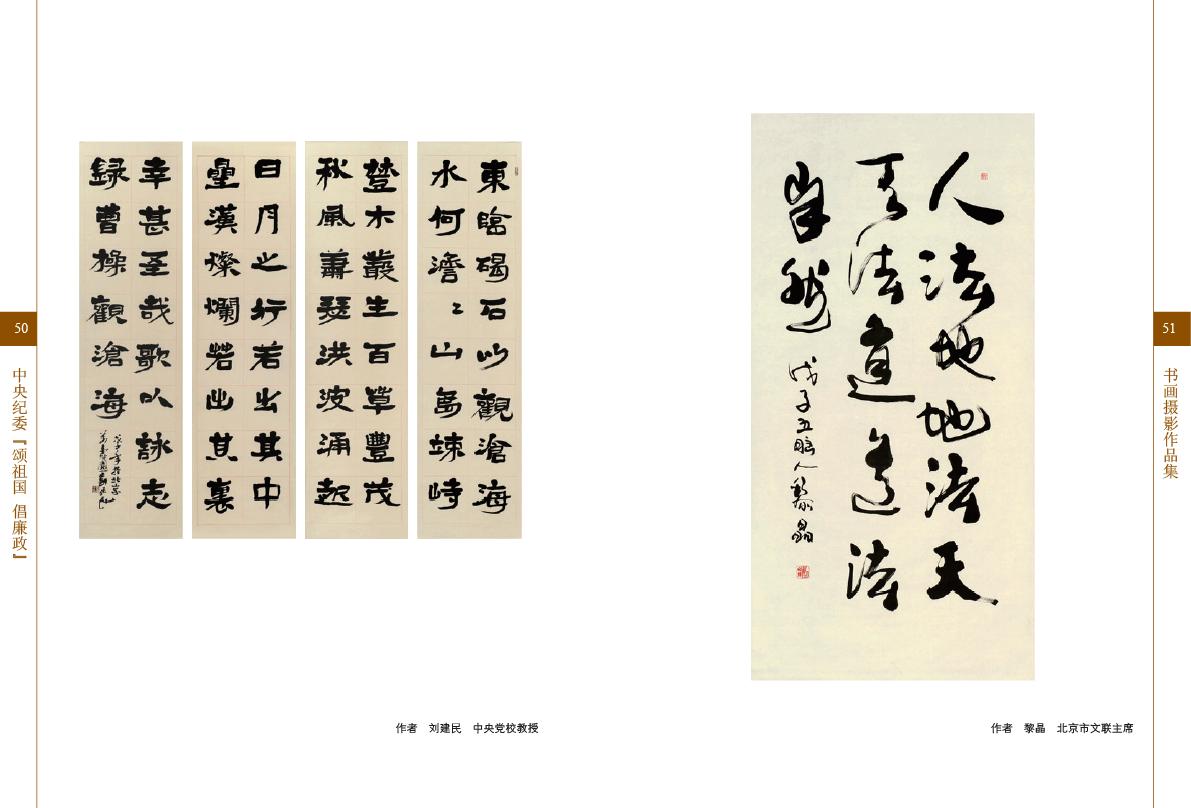 50
中央纪委『颂祖国 倡廉政』
東臨碣石以觀滄海
水何澹〻山島竦峙
木叢生百草豐茂
秋風蕭瑟洪波涌起
日月之行若出其中
星漢燦爛若出其裏
幸甚至哉歌以詠志
録曹操觀滄海
作者 刘建民 中央党校教授
人法地地法天
天法道道法
自然
戊子五 人黎晶
作者 黎晶 北京市文联主席
51
书画摄影作品集